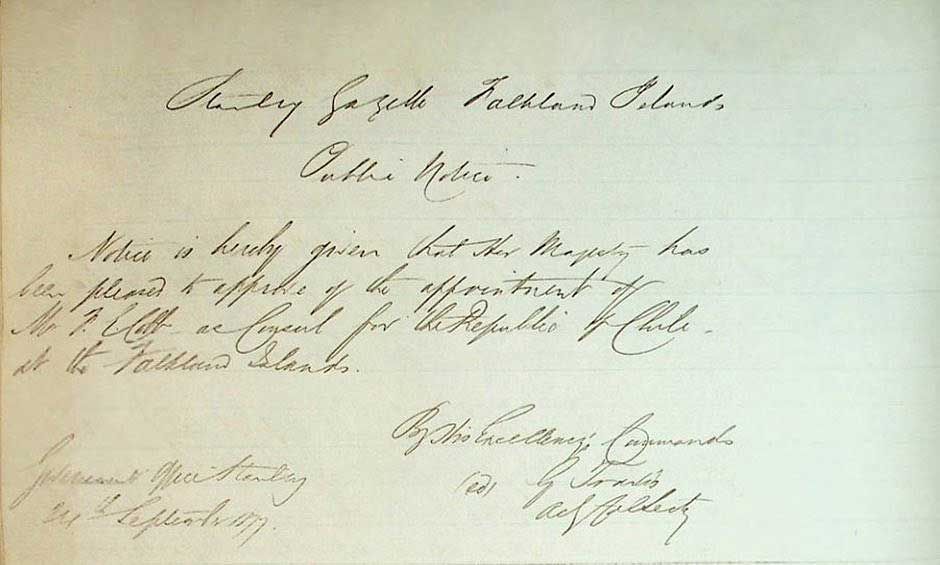 Stanley Gazette Falkland Islands
Public Notice.
Notice is hereby given that Her Majesty has
been pleased to approve of the appointment of
Mr F. E. Cobb as Consul for the Republic of Chile
at the Falkland Islands.
By His Excellency's Commands
Government Office Stanley
24th September 1877.
(sd) G Travis
Actg Col Secty